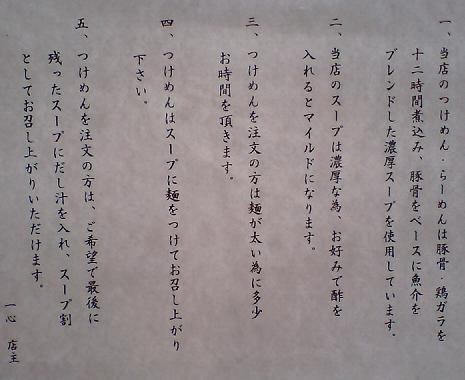 一、当店のつけめん・らーめんは豚骨・鶏ガラを
十二時間煮込み、豚骨をベースに魚介を
ブレンドした濃厚スープを使用しています。
二、当店のスープは濃厚な為、お好みで酢を
入れるとマイルドになります。
三、つけめんを注文の方は麺が太い為に多少
お時間を頂きます。
四、つけめんはスープに麺をつけてお召し上がり
下さい。
五、つけめんを注文の方は、ご希望で最後に
残ったスープにだし汁を入れ、スープ割
としてお召し上がりいただけます。
一心 店主